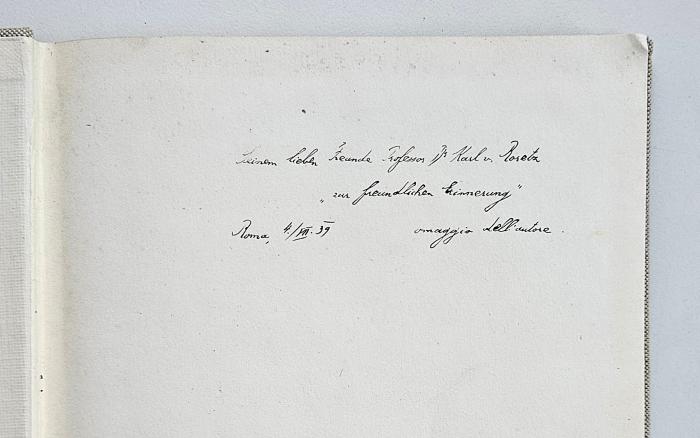 Seinem lieben Freunde Professor Dr Karl v. Roretz
„zur freundlichen Erinnerung"
Roma, 4./VII. 39 omaggio dell'autore.